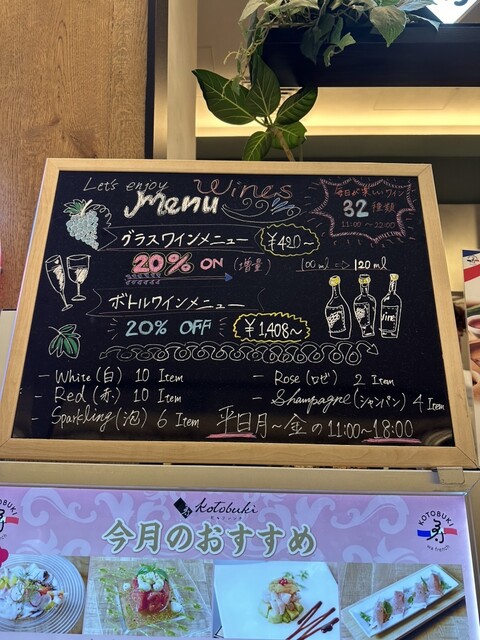 Let's enjoy Wines
Menu
毎日が楽しいワイン
32種類
11:00~22:00
グラスワインメニュー ¥420~
20% ON (増量) 100ml ⇨ 120ml
ボトルワインメニュー
20% OFF ¥1,408~
Wine
- White (白) 10 Item
- Red (赤) 10 Item
Sparkling (泡) 6 Item
- Rose (ロゼ) 2 Item
- Shampagne (シャンパン) 4 Item
平日月~金の11:00~18:00
kotobuki
今月のおすすめ
KOTOBUKI
寿
wa french